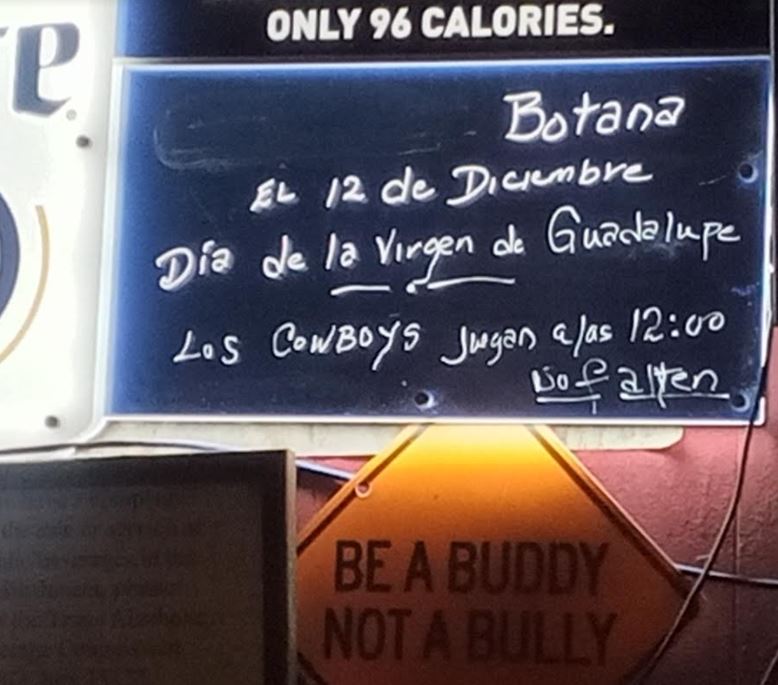 ONLY 96 CALORIES.
Botana
EL 12 de Diciembre
Día de la Virgen de Guadalupe
Los COWBOYS Juegan a las 12:00
No falten
BE A BUDDY
NOT A BULLY